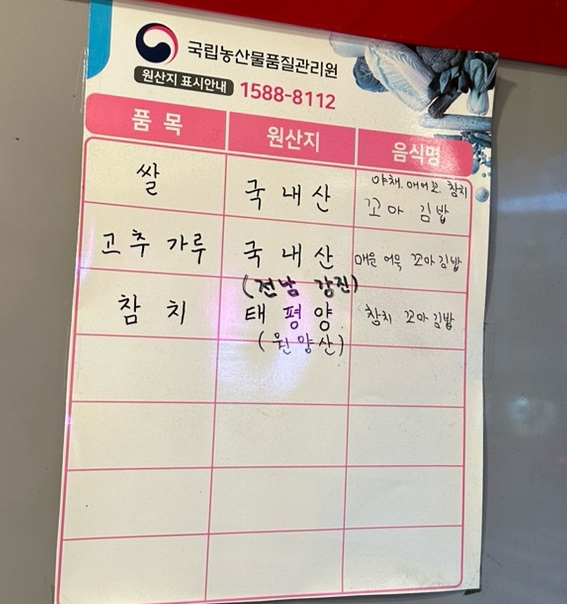 국립농산물품질관리원
원산지 표시안내 1588-8112
품 목 원산지 음식명
쌀 국 내 산 야채. 매어묵. 참치
꼬마 김밥
고추 가루 국 내 산 매운 어묵 꼬마김밥
(전남 강진)
참 치 태 평 양 참치 꼬마김밥
(원양산)